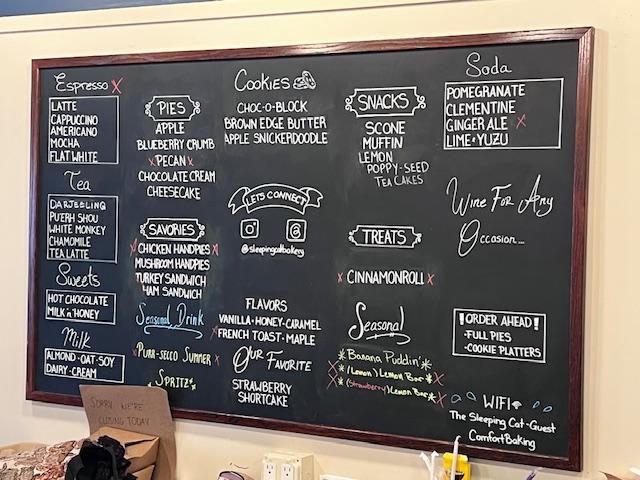 Espresso X
LATTE
CAPPUCCINO
AMERICANO
MOCHA
FLAT WHITE
Tea
DARJEELING
PU'ERH SHOU
WHITE MONKEY
CHAMOMILE
TEA LATTE
Sweets
HOT CHOCOLATE
MILK 'n' HONEY
Milk
ALMOND · OAT · SOY
DAIRY · CREAM
SORRY WE'RE
CLOSING TODAY
PIES
APPLE
BLUEBERRY CRUMB
X PECAN X
CHOCOLATE CREAM
CHEESECAKE
SAVORIES
X CHICKEN HANDPIES X
MUSHROOM HANDPIES
TURKEY SANDWICH
HAM SANDWICH
Seasonal Drink
X PURR-SECCO SUMMER X
SPRITZ
COOKIES
CHOC-O-BLOCK
BROWN EDGE BUTTER
APPLE SNICKERDOODLE
LETS CONNECT
@sleepingcatbakery
FLAVORS
VANILLA · HONEY · CARAMEL
X FRENCH TOAST · MAPLE
OUR FAVORITE
STRAWBERRY
SHORTCAKE
SNACKS
SCONE
MUFFIN
LEMON
POPPY-SEED
TEA CAKES
TREATS
X CINNAMONROLL X
Seasonal
Banana Puddin'
X (Lemon) Lemon Bar X
X (Strawberry) Lemon Bar X
Soda
POMEGRANATE
CLEMENTINE
GINGER ALE X
LIME & YUZU
Wine For Any
Occasion...
! ORDER AHEAD !
-FULL PIES
-COOKIE PLATTERS
WIFI
The Sleeping Cat-Guest
ComfortBaking